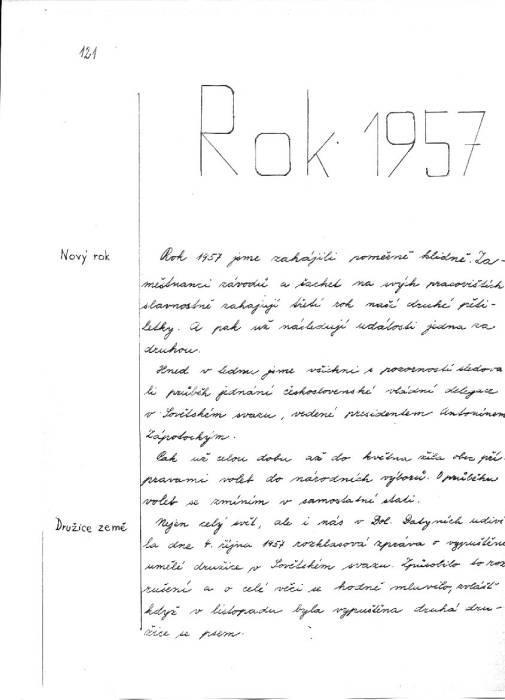 121
Rok 1957
Nový rok
Rok 1957 jsme zahájili poměrně klidně. Za-
městnanci závodů a šachet na svých pracovištích
slavnostně zahajují třetí rok naší druhé pěti-
letky. A pak už následují události jedna za
druhou.
Hned v lednu jsme všichni s pozorností sledova
li průběh jednání československé vládní delegace
v Sovětském svazu, vedené presidentem Antonínem
Zápotockým.
Pak už celou dobu až do května žila obec pří
pravami voleb do národních výborů. O průběhu
voleb se zmíním v samostatné stati.
Družice země
Nejen celý svět, ale i nás v Dol. Datyních udivi
la dne 4. října 1957 rozhlasová zpráva o vypuštění
umělé družice v Sovětském svazu. Způsobilo to roz
rušení a o celé věci se hodně mluvilo, zvlášť
když v listopadu byla vypuštěna druhá dru-
žice se psem.